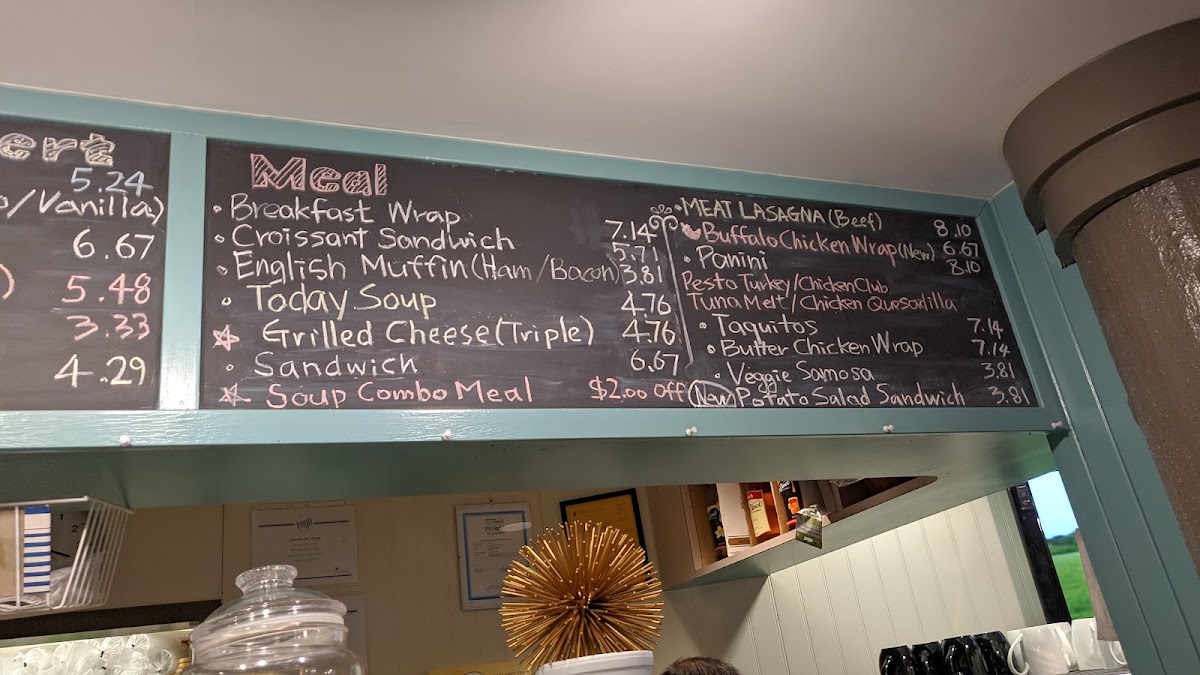 ert
5.24
o/Vanilla)
6.67
) 5.48
3.33
4.29
Meal
• Breakfast Wrap 7.14
• Croissant Sandwich 5.71
• English Muffin (Ham/Bacon) 3.81
• Today Soup 4.76
Grilled Cheese (Triple) 4.76
• Sandwich 6.67
Soup Combo Meal $2.00 Off
• MEAT LASAGNA (Beef) 8.10
Buffalo Chicken Wrap (New) 6.67
• Panini 8.10
Pesto Turkey/Chicken Club
Tuna Melt/Chicken Quesadilla
• Taquitos 7.14
• Butter Chicken Wrap 7.14
• Veggie Samosa 3.81
(New) Potato Salad Sandwich 3.81